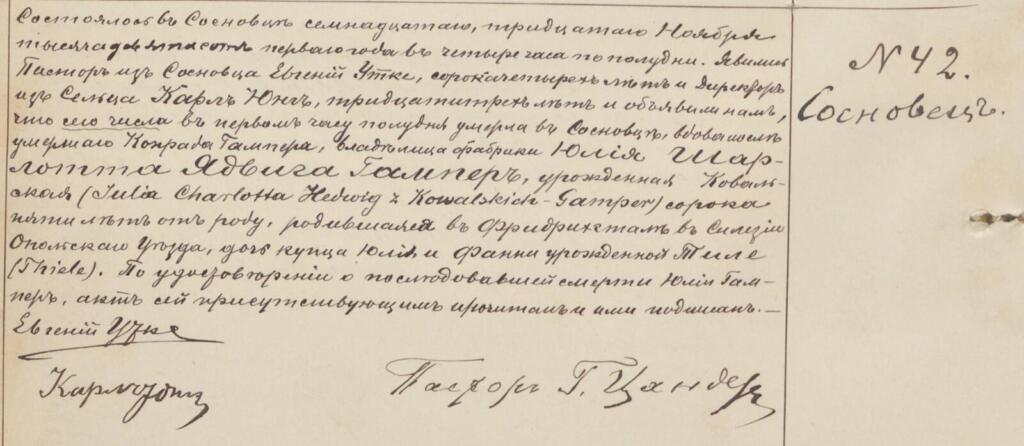 Состоялось въ Сосновцѣ семнадцатаго, тридцатаго Ноября
тысяча девятьсотъ перваго года въ четыре часа по полудни. Явились
Пасторъ изъ Сосновца Евгеній Утке, сорока четырехъ лѣтъ и Директоръ
изъ Сельца Карлъ Юнгъ, тридцати трехъ лѣтъ и объявили намъ,
что сего числа въ первомъ часу полудня умерла въ Сосновцѣ, вдова послѣ
умершаго Конрада Гампера, владѣлица фабрики Юлія Шар-
лотта Ядвига Гамперъ, урожденная Коваль-
ская (Julia Charlotta Hedwig z Kowalskich-Gamper) сорока
пяти лѣтъ отъ роду, родившаяся въ Фридрихсталѣ въ Силезіи
Опольскаго Уѣзда, дочь купца Юлія и Фанни урожденной Тиле
(Thiele). По удостовѣреніи о послѣдовавшей смерти Юліи Гам-
перъ, актъ сей присутствующимъ прочитанъ и ими подписанъ.—
Евгеній Утке
Карлъ Юнгъ
Пасторъ Г. Цандеръ
N 42.
Сосновецъ.